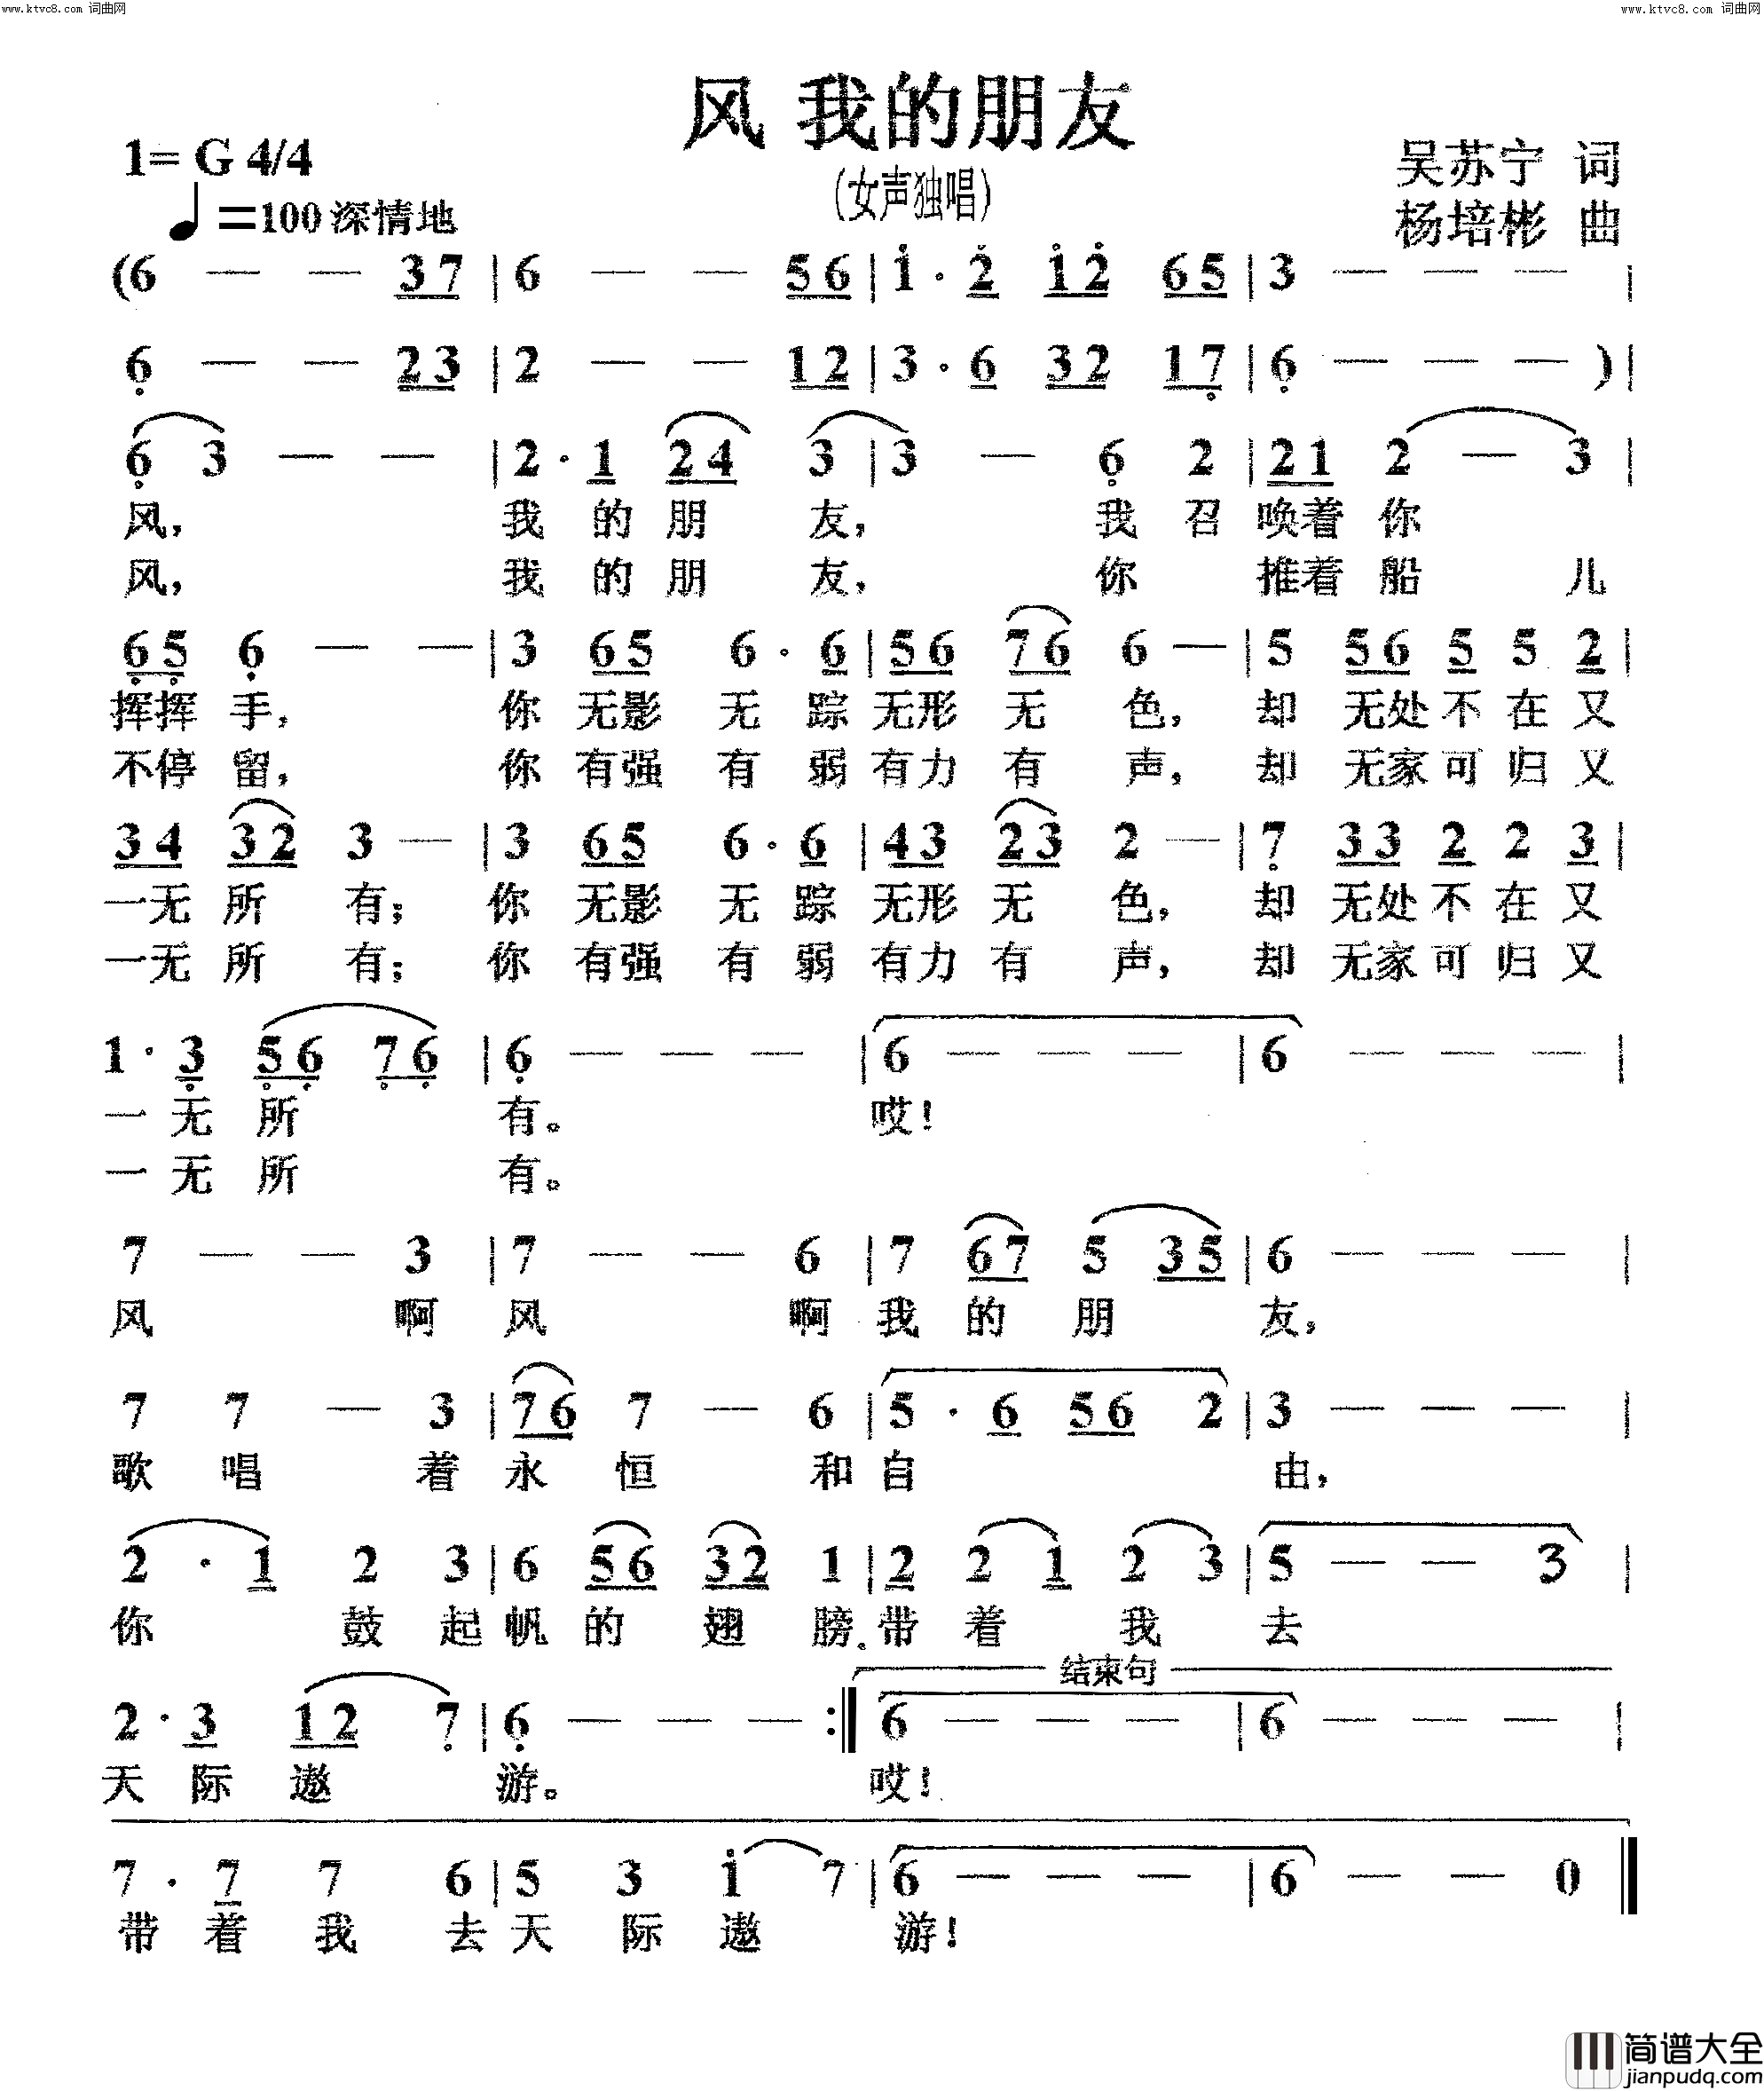 www.ktvc8.com 词曲网 www.ktvc8.com 词曲网
风 我的朋友
1= G 4/4
(女声独唱)
吴苏宁 词
♩=100 深情地
杨培彬 曲
(6 — — 37 | 6 — — 56 | 1· 2 12 65 | 3 — — — |
6 — — 23 | 2 — — 12 | 3· 6 32 17 | 6 — — — ) |
6 3 — — | 2· 1 24 3 | 3 — 6 2 | 21 2 — 3 |
风, 我 的 朋 友, 我 召 唤着 你
风, 我 的 朋 友, 你 推着 船 儿
65 6 — — | 3 65 6· 6 | 56 76 6 — | 5 56 5 5 2 |
挥挥 手, 你 无影 无 踪 无形 无 色, 却 无处 不 在 又
不停 留, 你 有强 有 弱 有力 有 声, 却 无家 可 归 又
34 32 3 — | 3 65 6· 6 | 43 23 2 — | 7 33 2 2 3 |
一无 所 有; 你 无影 无 踪 无形 无 色, 却 无处 不 在 又
一无 所 有; 你 有强 有 弱 有力 有 声, 却 无家 可 归 又
1· 3 56 76 | 6 — — — | 6 — — — | 6 — — — |
一 无 所 有。 哎!
一 无 所 有。
7 — — 3 | 7 — — 6 | 7 67 5 35 | 6 — — — |
风 啊 风 啊 我 的 朋 友,
7 7 — 3 | 76 7 — 6 | 5 · 6 56 2 | 3 — — — |
歌 唱 着 永 恒 和 自 由,
2 · 1 2 3 | 6 56 32 1 | 2 2 1 2 3 | 5 — — 3 |
你 鼓 起 帆 的 翅 膀。带 着 我 去
结束句
2· 3 12 7 | 6 — — — :‖ 6 — — — | 6 — — — |
天 际 遨 游。 哎!
7· 7 7 6 | 5 3 1 7 | 6 — — — | 6 — — 0 ‖
带 着 我 去 天 际 遨 游!
简谱大全
jianpudq.com